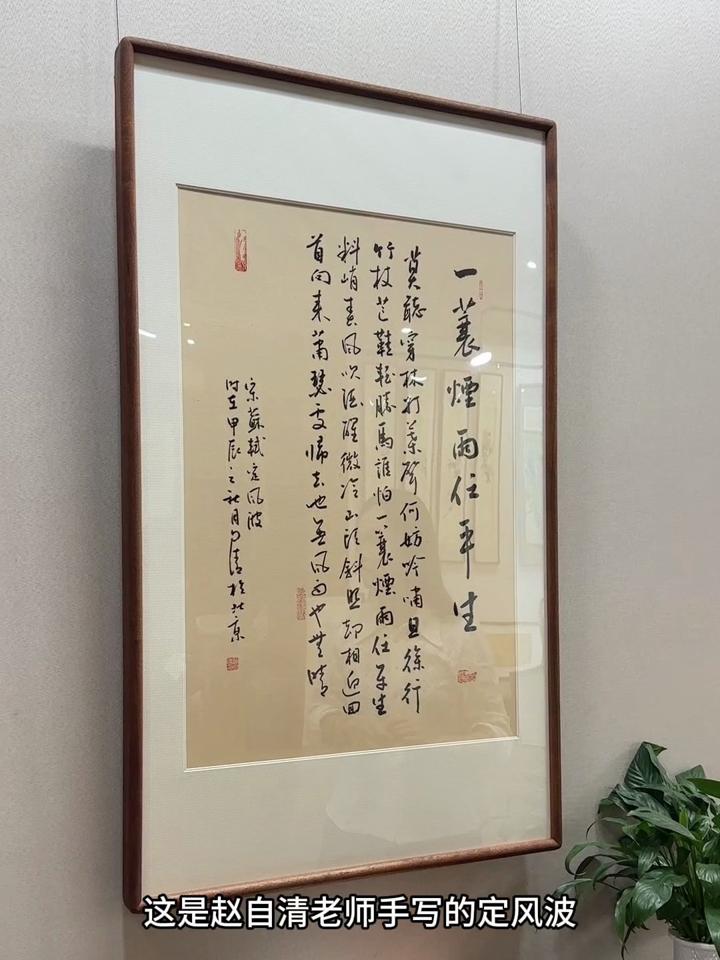 一蓑煙雨任平生
莫聽穿林打葉聲何妨吟嘯且徐行
竹杖芒鞋輕勝馬誰怕一蓑煙雨任平生
料峭春風吹酒醒微冷山頭斜照却相迎回
首向來蕭瑟處歸去也無風雨也無晴
宋蘇軾定風波
時在甲辰之秋月自清於北京
这是赵自清老师手写的定风波